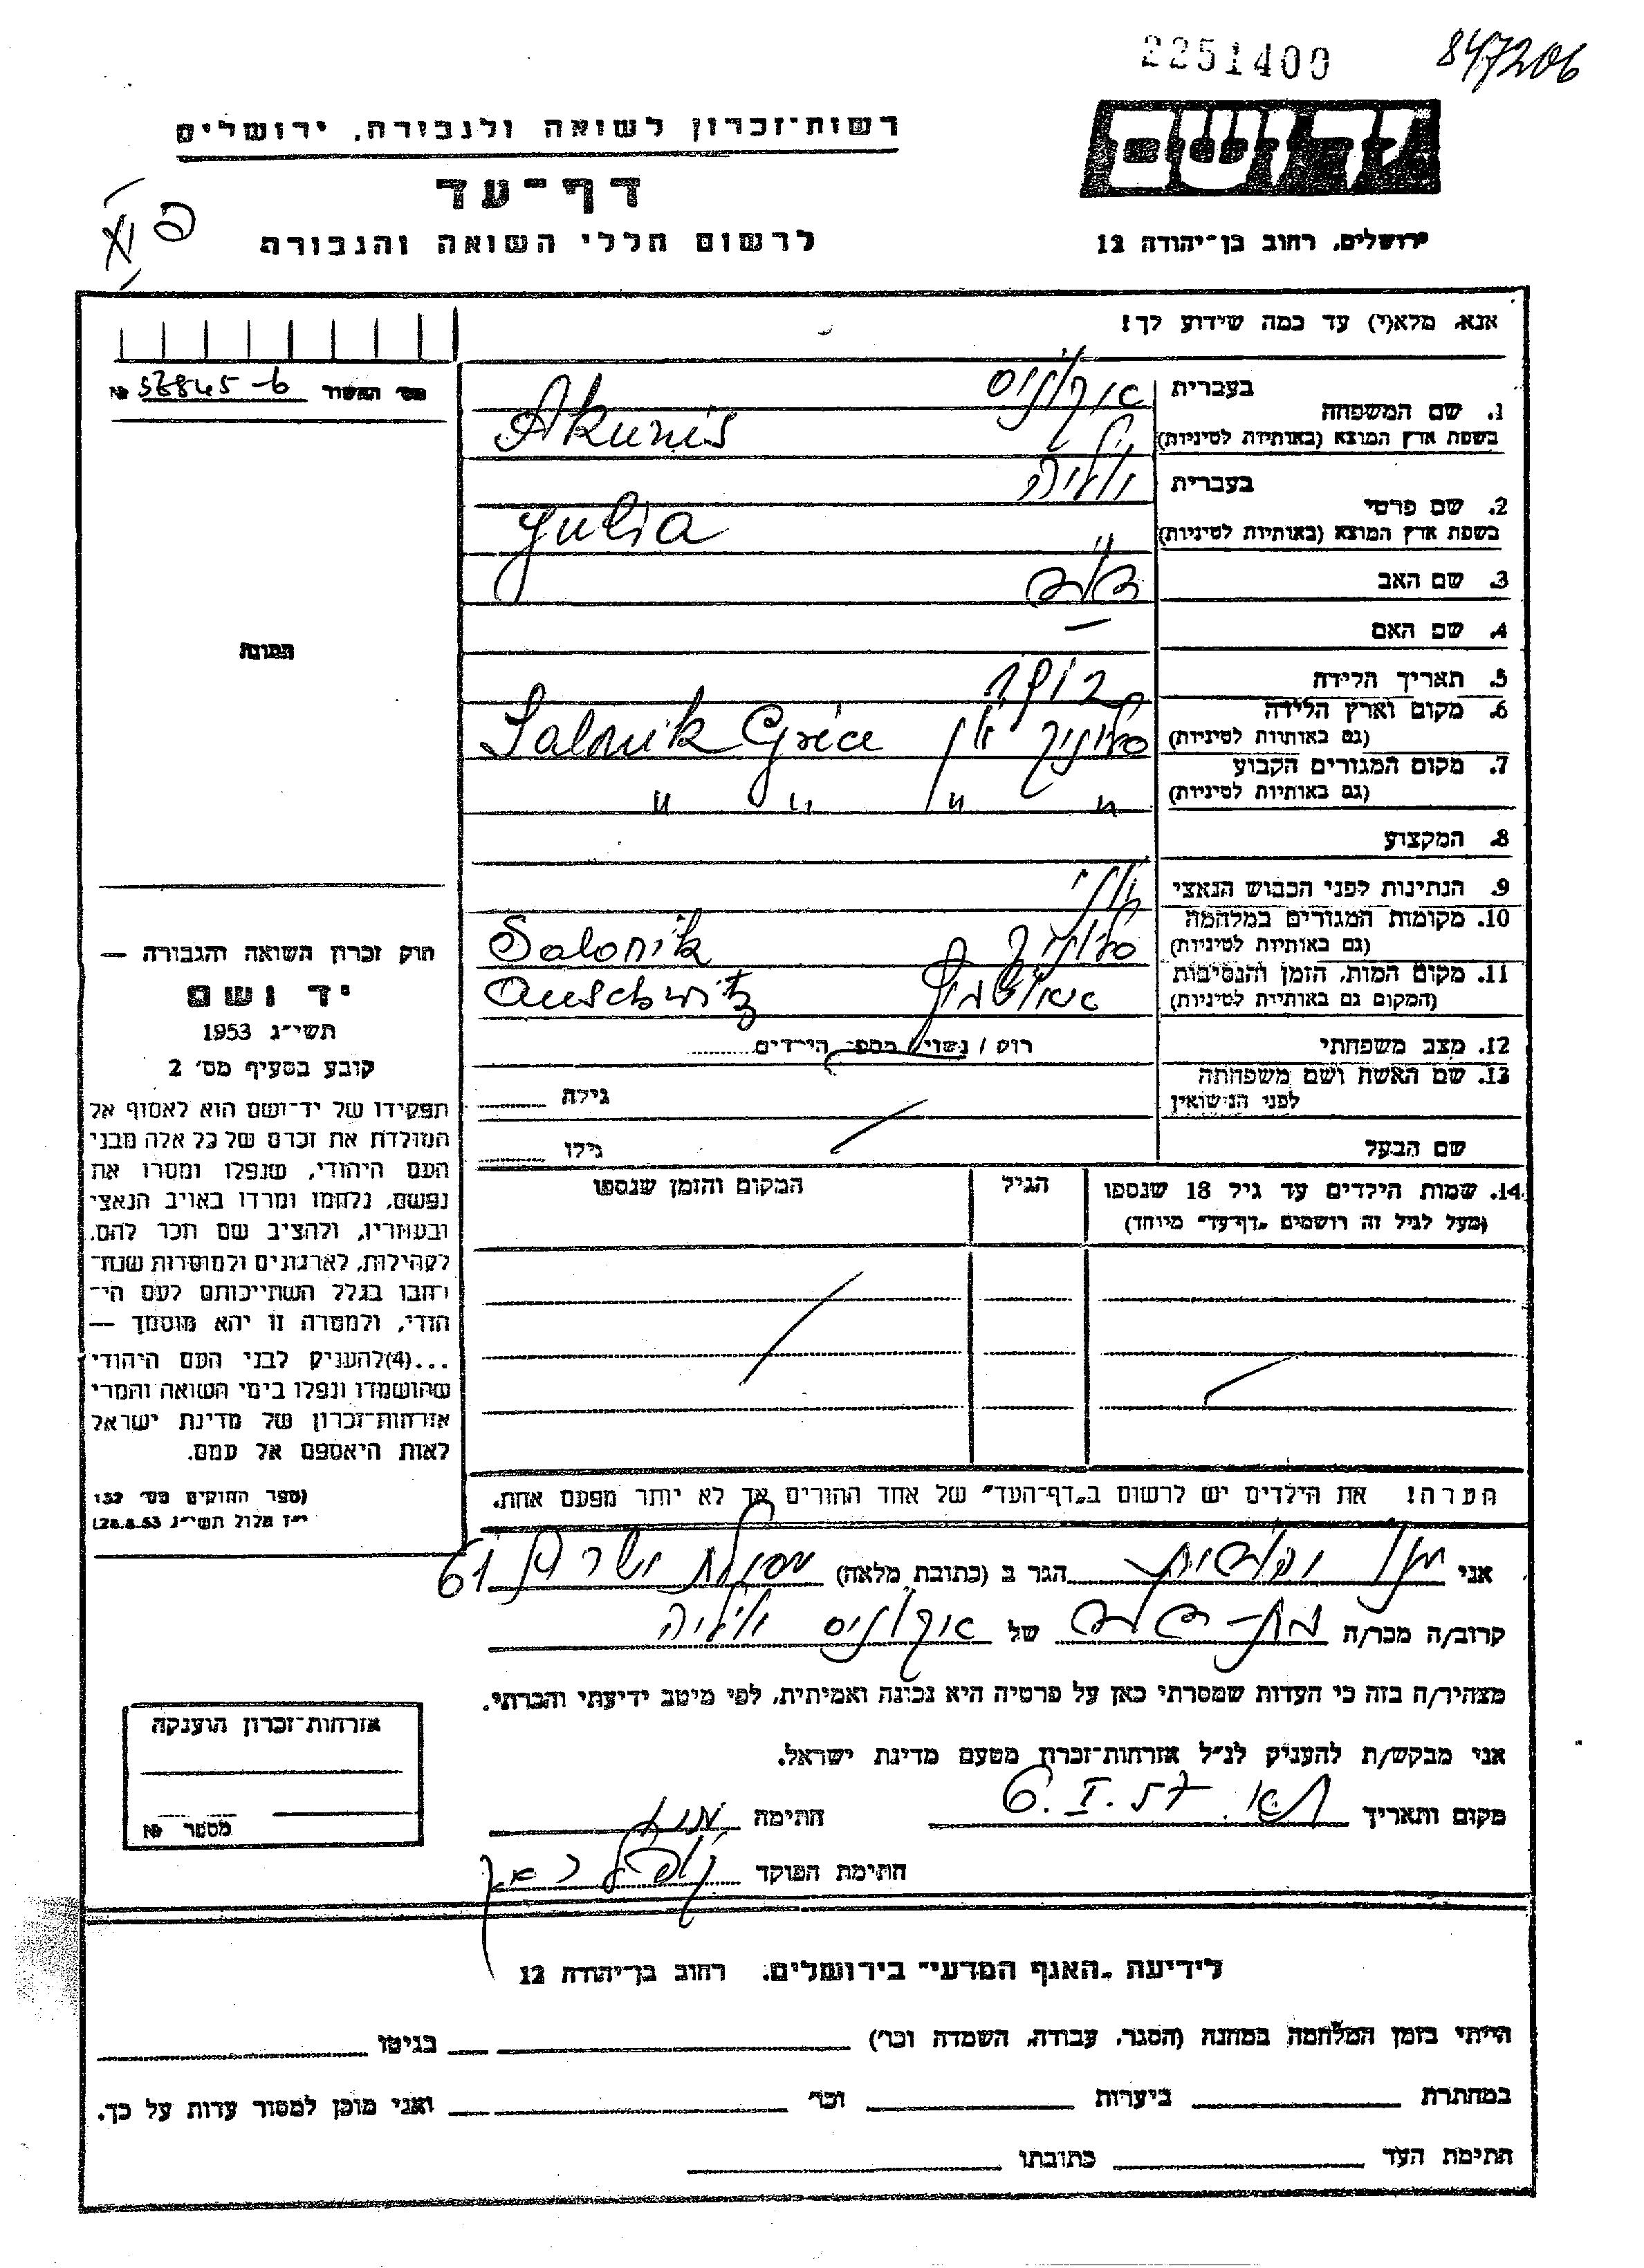 2251400
847206
יד ושם
רשות־זכרון לשואה ולגבורה, ירושלים
דף־עד
לרשום חללי השואה והגבורה
ירושלים, רחוב בן־יהודה 12
אנא, מלא(י) עד כמה שידוע לך!
מס׳ האשור № 56845-6
1. שם המשפחה בעברית אקוניס
בשפת ארץ המוצא (באותיות לטיניות) Akunis
2. שם פרטי בעברית יוליה
בשפת ארץ המוצא (באותיות לטיניות) Yulia
3. שם האב
4. שם האם —
5. תאריך הלידה
6. מקום וארץ הלידה
(גם באותיות לטיניות) סלוניק יון Salonik Grèce
7. מקום המגורים הקבוע
(גם באותיות לטיניות) " " " "
8. המקצוע
9. הנתינות לפני הכבוש הנאצי יוני
10. מקומות המגורים במלחמה
(גם באותיות לטיניות) סלוניק Salonik
11. מקום המות, הזמן והנסיבות
(המקום גם באותיות לטיניות) אאושוויץ Auschwitz
12. מצב משפחתי רווק / נשוי / מספר הילדים
13. שם האשה ושם משפחתה
לפני הנישואין גילה
שם הבעל גילו
14. שמות הילדים עד גיל 18 שנספו הגיל המקום והזמן שנספו
(מעל לגיל זה רושמים „דף־עד״ מיוחד)
הערה! את הילדים יש לרשום ב„דף־העד״ של אחד ההורים אך לא יותר מפעם אחת.
התמונה
חוק זכרון השואה והגבורה —
יד ושם
תשי״ג 1953
קובע בסעיף מס׳ 2
תפקידו של יד־ושם הוא לאסוף אל
המולדת את זכרם של כל אלה מבני
העם היהודי, שנפלו ומסרו את
נפשם, נלחמו ומרדו באויב הנאצי
ובעוזריו, ולהציב שם וזכר להם,
לקהילות, לארגונים ולמוסדות שנח־
רבו בגלל השתייכותם לעם הי־
הודי, ולמטרה זו יהא מוסמך —
...(4)להעניק לבני העם היהודי
שהושמדו ונפלו בימי השואה והמרי
אזרחות־זכרון של מדינת ישראל
לאות היאספם אל עמם.
(ספר החוקים מס׳ 132
י״ז אלול תשי״ג 28.8.53)
אני הגר ב (כתובת מלאה) 61
קרוב/ה מכר/ה של אקוניס יוליה
מצהיר/ה בזה כי העדות שמסרתי כאן על פרטיה היא נכונה ואמיתית, לפי מיטב ידיעתי והכרתי.
אני מבקש/ת להעניק לנ״ל אזרחות־זכרון מטעם מדינת ישראל.
מקום ותאריך ת״א. 6.I.57 חתימה
חתימת הפוקד
אזרחות־זכרון הוענקה
מספר №
לידיעת „האגף המדעי״ בירושלים, רחוב בן־יהודה 12
הייתי בזמן המלחמה במחנה (הסגר, עבודה, השמדה וכו׳) בגיטו
במחתרת ביערות וכו׳ ואני מוכן למסור עדות על כך.
חתימת העד כתובתו